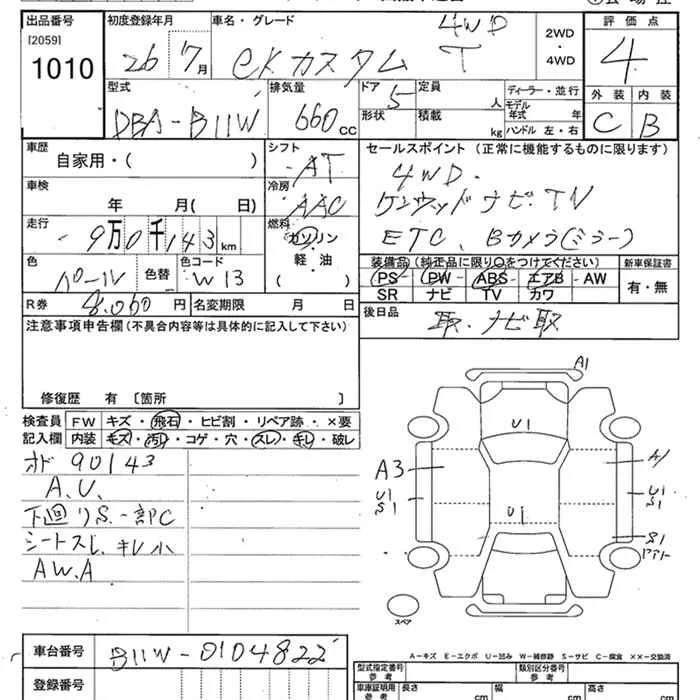 出品番号 初度登録年月 車名・グレード 4WD 2WD・4WD 評価点
[2059]
1010 26 7月 eKカスタム T 4
型式 排気量 ドア 5 定員 人 ディーラー・並行 外装 内装
DBA-B11W 660cc 形状 積載 kg モデル年式 年 ハンドル 左・右 C B
車歴 シフト セールスポイント (正常に機能するものに限ります)
自家用・( ) AT 4WD.
車検 冷房 ケンウッドナビ・TV
年 月( 日) AAC
走行 燃料 ETC、Bカメラ(ミラー)
9万0千143km ガソリン・軽・油 ( )
色 色替 色コード 装備品(純正品に限り○をつけてください) 新車保証書
パール W13 PS PW ABS エアB AW 有・無
SR ナビ TV カワ
R券 8,060円 名変期限 月 日 後日品
注意事項申告欄(不具合内容等は具体的に記入して下さい) 取.ナビ取
修復歴 有 〔箇所
検査員 FW キズ・飛石・ヒビ割・リペア跡・×要
記入欄 内装 キズ・汚レ・コゲ・穴・スレ・キレ・破レ
オド 90143
A.U.
下廻りS.一部C
シートスレ キレ小
AW.A
A1
U1
A3 A1
U1 U1
S1 S1
U1
S1
スペア
A-キズ E-エクボ U-凹み W-補修跡 S-サビ C-腐食 ××-交換済
車台番号 B11W-0104822 型式指定番号 参考 類別区分番号 参考
登録番号 車庫証明用 参考 長さ cm 幅 cm 高さ cm